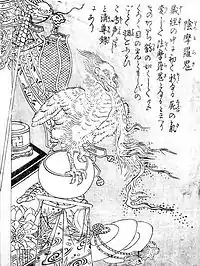 陰摩羅鬼
蔵経の中に初て新なる屍の気
変じて陰摩羅鬼となると云へり
そのかたち鶴の如くして色
くろく目の光ともしびの
ごとく羽をふるひて
鳴声たかし
と清尊録に
あり